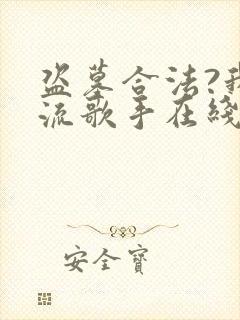 盗墓合法?我
流歌手在綫
安全寶